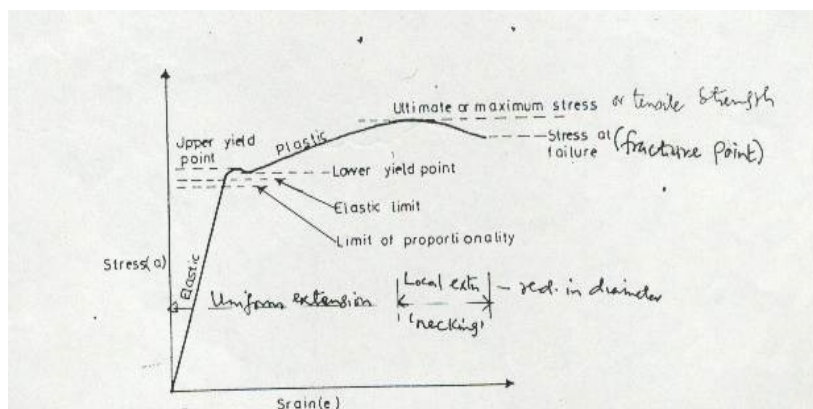 Ultimate or maximum stress or tensile strength
Upper yield
point
Plastic
Stress at
failure (fracture point)
Lower yield point
Elastic limit
Limit of proportionality
Stress(a)
Elastic
Uniform extension
Local extn
'necking'
- red. in diameter
Srain(e)